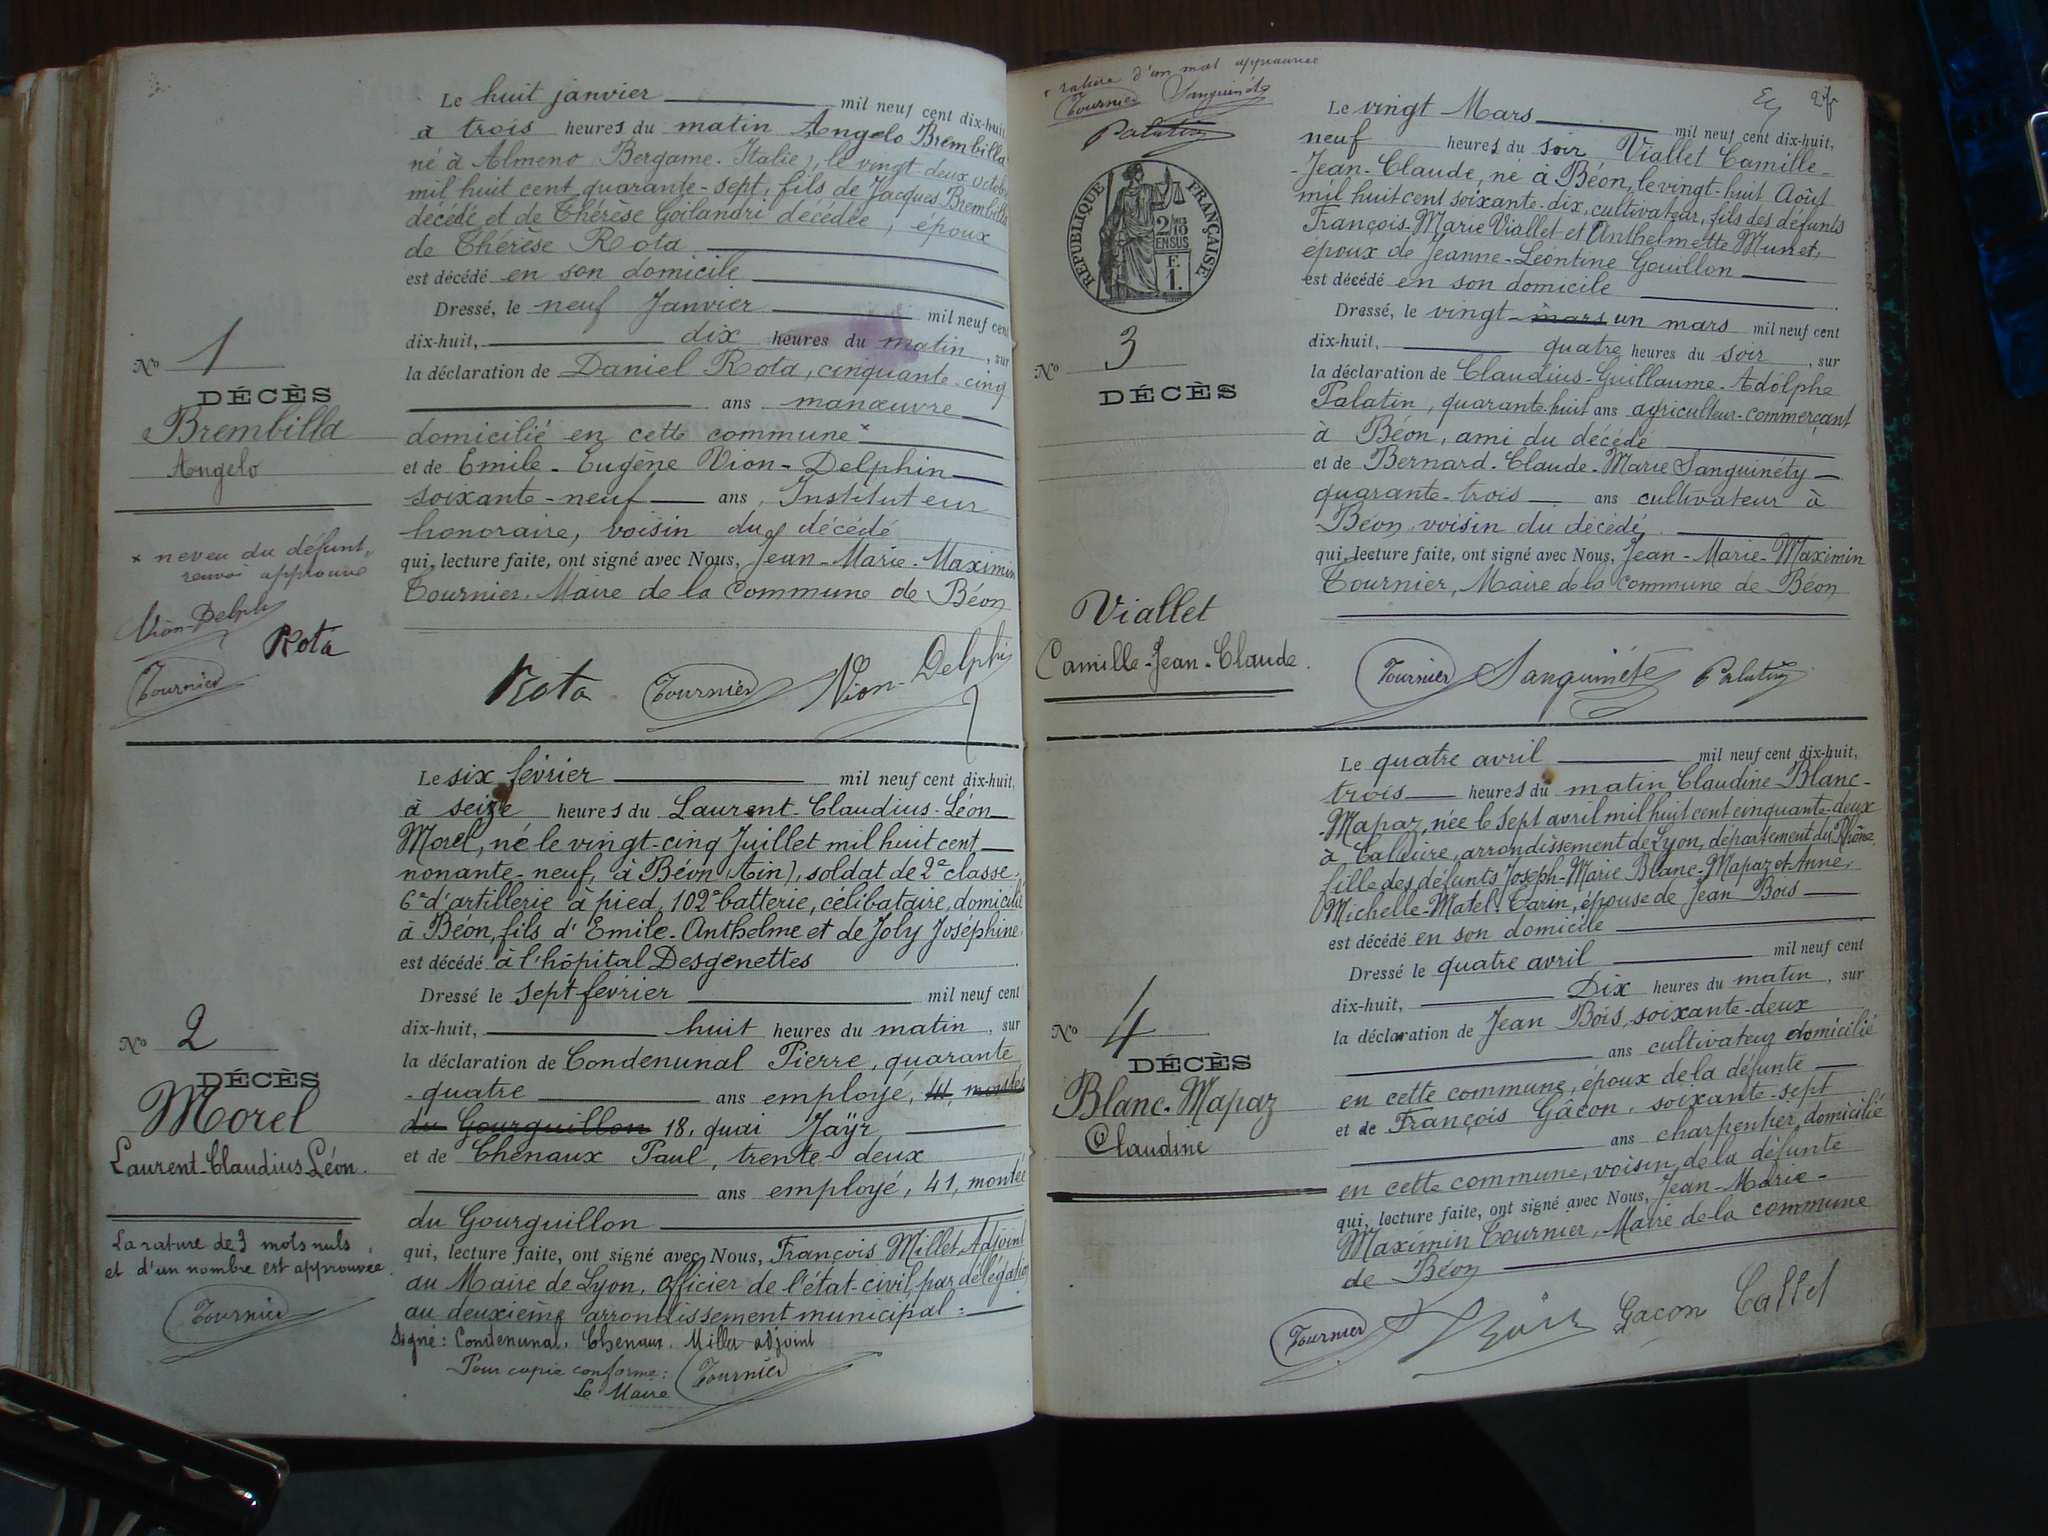 Le huit janvier mil neuf cent dix-huit
à trois heures du matin Angelo Brembilla
né à Almeno Bergame. Italie), le vingt-deux octobre
mil huit cent quarante-sept, fils de Jacques Brembilla
décédé et de Thérèse Goilandri décédée, époux
de Thérèse Rota
est décédé en son domicile
Dressé, le neuf Janvier mil neuf cent
dix-huit, dix heures du matin, sur
la déclaration de Daniel Rota, cinquante-cinq
ans manœuvre
domicilié en cette commune *
et de Emile-Eugène Vion-Delphin
soixante-neuf ans, Instituteur
honoraire, voisin du décédé
qui, lecture faite, ont signé avec Nous, Jean-Marie-Maximin
Tournier. Maire de la Commune de Béon
Rota Tournier Vion-Delphin
No 1
DÉCÈS
Brembilla
Angelo
* neveu du défunt,
renvoi approuvé
Vion-Delphin
Rota
Tournier
Le six février mil neuf cent dix-huit,
à seize heures du Laurent-Claudius-Léon
Morel, né le vingt-cinq Juillet mil huit cent
nonante-neuf, à Béon (Ain), soldat de 2e classe,
6e d'artillerie à pied, 102e batterie, célibataire, domicilié
à Béon, fils d'Emile-Anthelme et de Joly Joséphine,
est décédé à l'hôpital Desgenettes
Dressé le sept février mil neuf cent
dix-huit, huit heures du matin, sur
la déclaration de Condenunal Pierre, quarante
-quatre ans employé, 41, montée
du Gourguillon 18, quai Jaÿr
et de Chenaux Paul, trente-deux
ans employé, 41, montée
du Gourguillon
qui, lecture faite, ont signé avec Nous, François Millet, Adjoint
au Maire de Lyon, officier de l'état-civil, par délégation
au deuxième arrondissement municipal :
Signé: Condenunal, Chenaux. Millet adjoint
Pour copie conforme:
Le Maire Tournier
No 2
DÉCÈS
Morel
Laurent-Claudius Léon.
La rature de 3 mots nuls,
et d'un nombre est approuvée.
Tournier
* rature d'un mot approuvée
Tournier Sanguinéty
Palatin
RÉPUBLIQUE FRANÇAISE
2/10
EN SUS
F.
1.
275
Le vingt Mars mil neuf cent dix-huit,
neuf heures du soir Viallet Camille-
-Jean-Claude, né à Béon, le vingt-huit Août
mil huit cent soixante-dix, cultivateur, fils des défunts
François-Marie Viallet et Anthelmette Munet,
époux de Jeanne-Léontine Gouillon
est décédé en son domicile
Dressé, le vingt-mars un mars mil neuf cent
dix-huit, quatre heures du soir, sur
la déclaration de Claudius-Guillaume-Adolphe
Palatin, quarante huit ans agriculteur-commerçant
à Béon, ami du décédé
et de Bernard-Claude-Marie Sanguinéty
quarante-trois ans cultivateur à
Béon voisin du décédé
qui, lecture faite, ont signé avec Nous, Jean-Marie-Maximin
Tournier, Maire de la Commune de Béon
Tournier Sanguinéty Palatin
No 3
DÉCÈS
Viallet
Camille-Jean-Claude.
Le quatre avril mil neuf cent dix-huit,
trois heures du matin Claudine Blanc-
-Mapaz, née le sept avril mil huit cent cinquante-deux
à Calluire, arrondissement de Lyon, département du Rhône
fille des défunts Joseph-Marie Blanc-Mapaz et Anne,
Michelle-Matel-Carin, épouse de Jean Bois
est décédé en son domicile
Dressé le quatre avril mil neuf cent
dix-huit, Dix heures du matin, sur
la déclaration de Jean Bois, soixante-deux
ans cultivateur domicilié
en cette commune, époux de la défunte
et de François Gâcon, soixante-sept
ans charpentier, domicilié
en cette commune, voisin de la défunte
qui, lecture faite, ont signé avec Nous, Jean-Marie-
Maximin Tournier, Maire de la commune
de Béon
Tournier Bois Gacon Callet
No 4
DÉCÈS
Blanc-Mapaz
Claudine